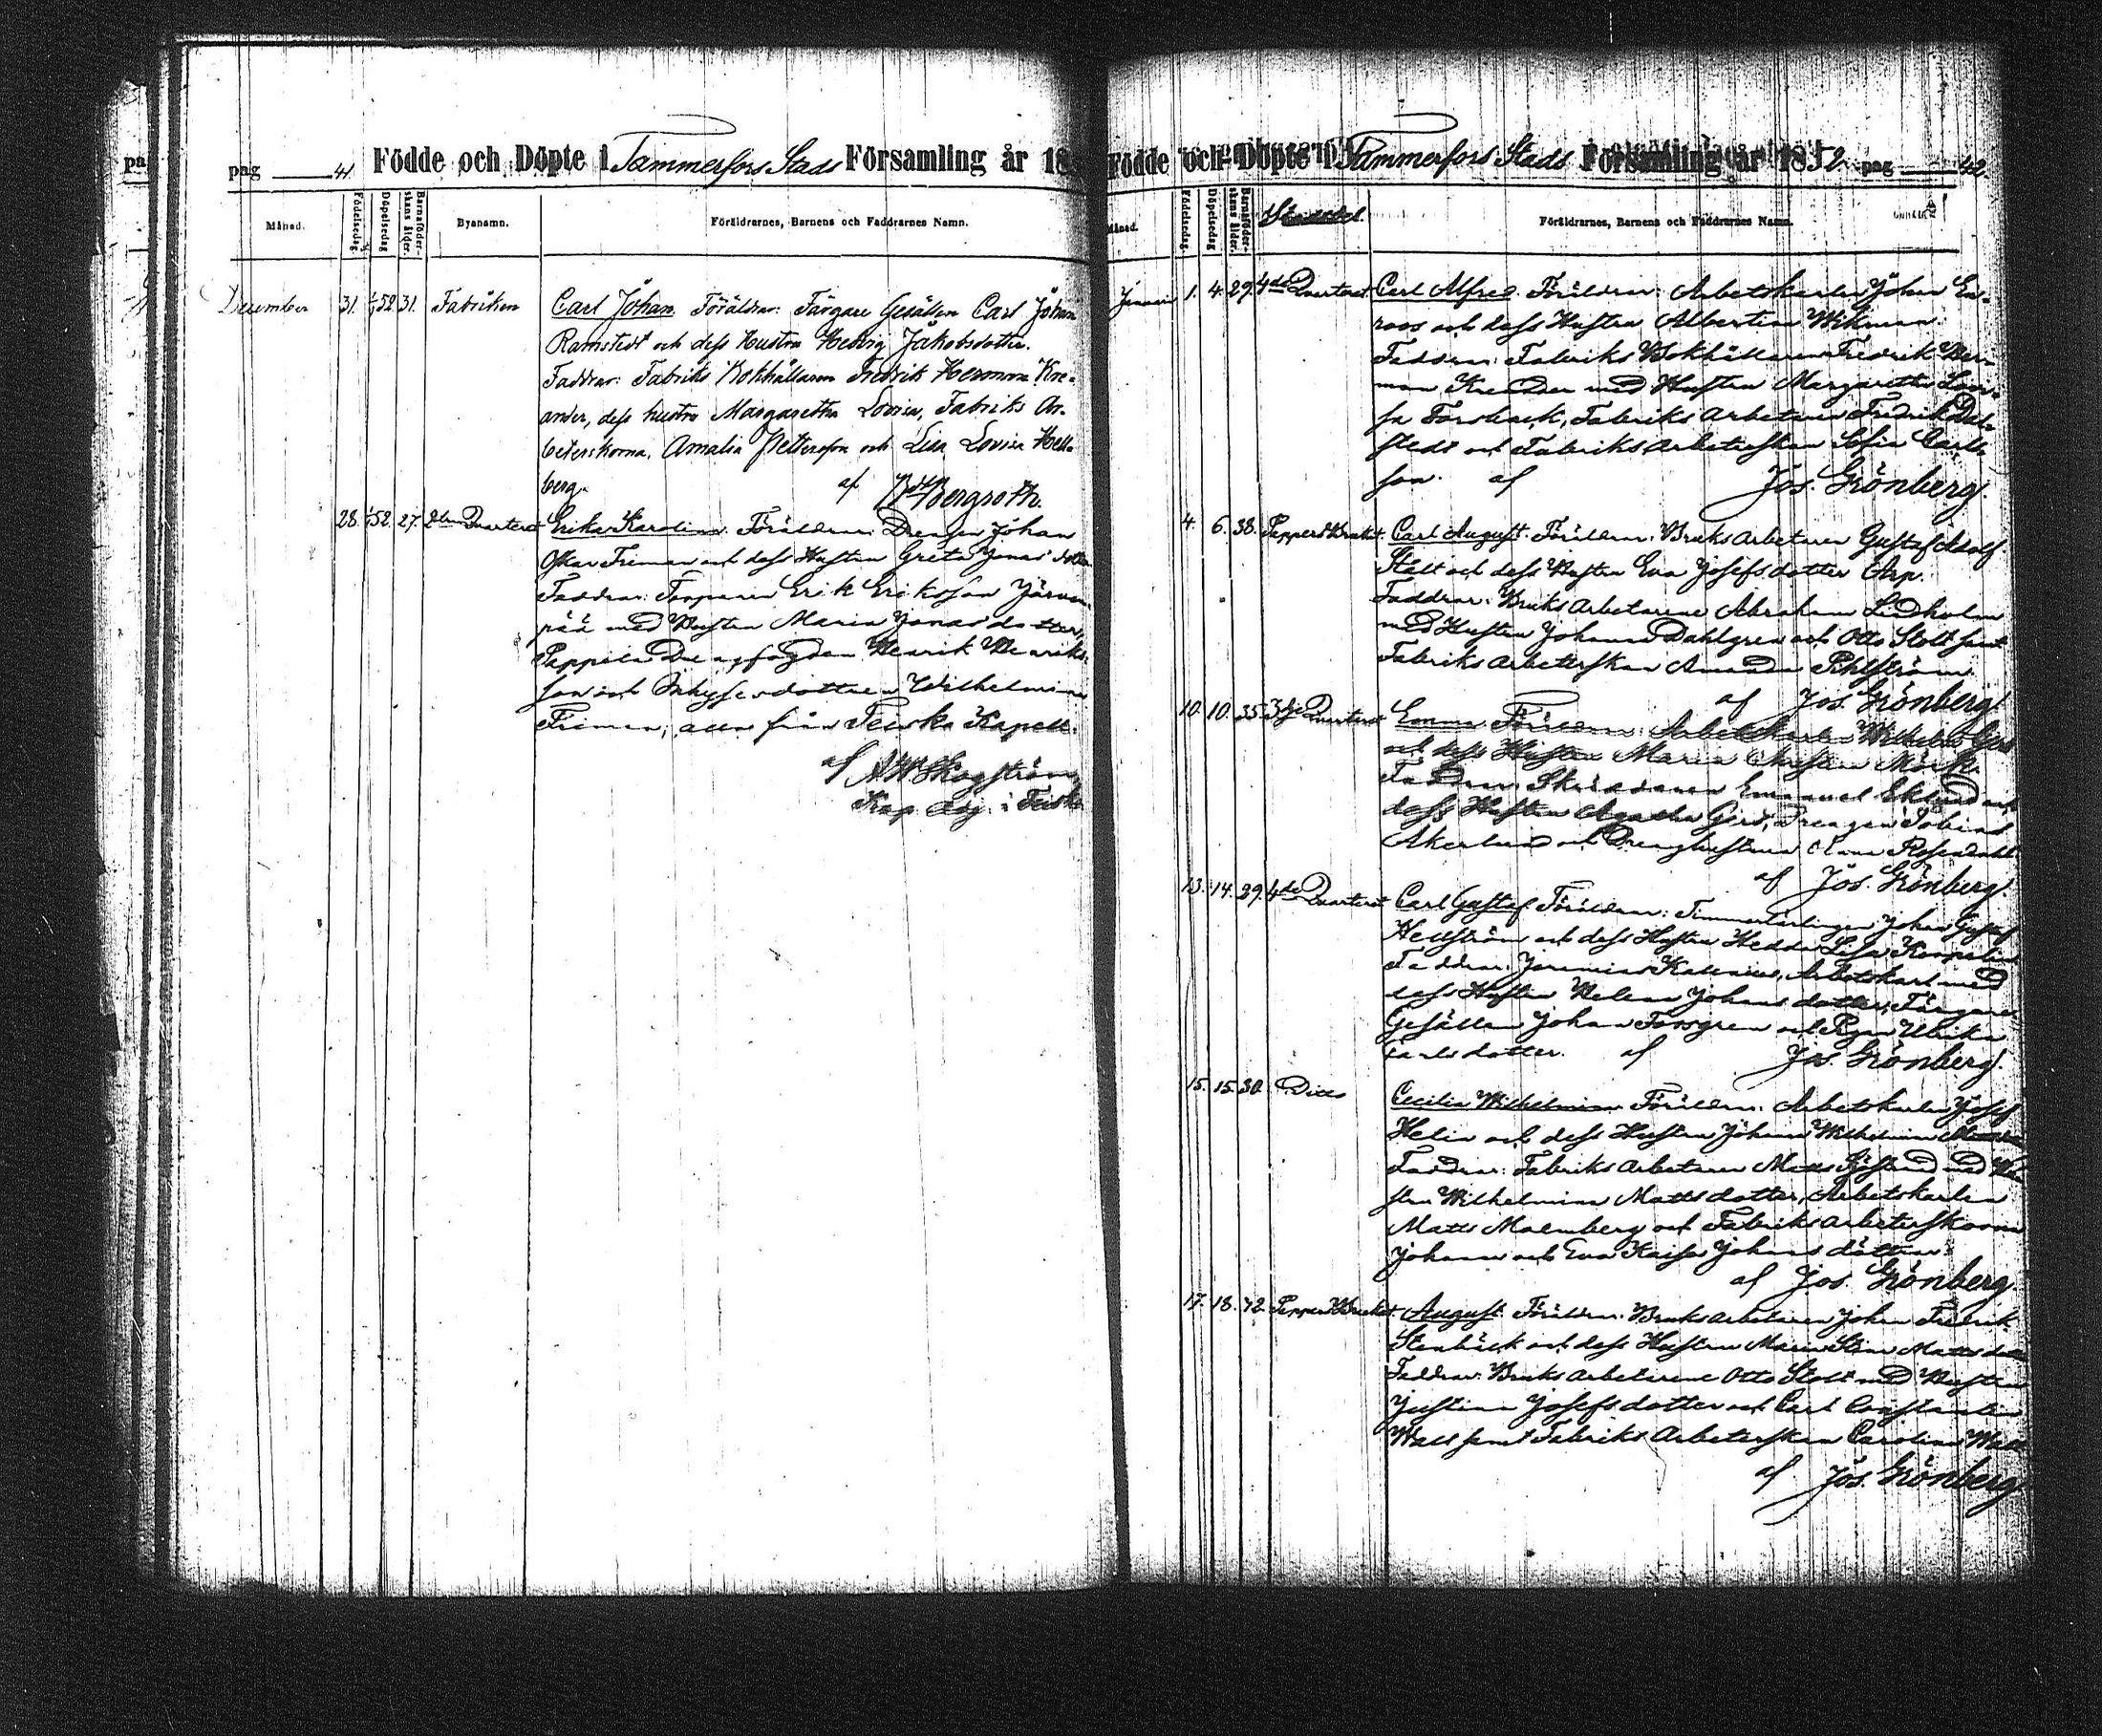 pag 41 Födde och Döpte i Tammerfors Stads Församling år 18
Månad. Födelsedag. Döpelsedag Barnaföderskans ålder. Byanamn. Föräldrarnes, Barnens och Faddrarnes Namn.
December 31. 52. 31. Fabriken Carl Johan. Föräldrar: Färgare Gesällen Carl Johan
Ramstedt och dess Hustru Hedvig Jakobsdotter.
Faddrar: Fabriks Bokhållaren Fredrik Herman Kre-
ander, dess hustru Margaretha Lovisa, Fabriks Ar-
beterskorna, Amalia Pettersson och Lisa Lovisa Hell-
berg. af Bergroth.
28. 52. 27. Quarteret Erika Karolina. Föräldrar: Drengen Johan
Oskar Friman och dess Hustru Greta Jonasdotter
Faddrar: Torparen Erik Eriksson Järven-
pää med Hustru Maria Jonasdotter,
Drengfogden Henrik Henriks-
son och Inhysesdottren Wilhelmina
Friman, alla från Teisko Kapell.
af A. W. Skogström
Kap. Adj. i Teisko
Födde och Döpte i Tammerfors Stads Församling år 1852. pag 42.
Månad. Födelsedag. Döpelsedag Barnaföderskans ålder. Föräldrarnes, Barnens och Faddrarnes Namn.
Januari 1. 4. 29. 4de Quarteret Carl Alfred. Föräldrar: Arbetskarlen Johan En-
roos och dess Hustru Albertina Wikman.
Faddrar: Fabriks Bokhållaren Fredrik Her-
man Kreander med Hustru Margaretha Lovi-
sa Forsback, Fabriks Arbetaren Fredrik Dal-
stedt och Fabriks Arbeterskan Sofia Carls-
son. af Jos. Grönberg.
4. 6. 38. Pappers Bruket. Carl August. Föräldrar: Bruks Arbetaren Gustaf Adolf
Stolt och dess Hustru Eva Josefsdotter Arp.
Faddrar: Bruks Arbetarene Abraham Lindholm
med Hustru Johanna Dahlgren och Otto Stolt samt
Fabriks Arbeterskan Amanda Pihlström.
af Jos. Grönberg.
10. 10. 35. 3dje Quarteret Emma. Föräldrar: Arbetskarlen Wilhelm
och dess Hustru Maria Christina Mörk.
Faddrar: Skräddaren Emanuel Eklund och
dess Hustru Agatha Drengen Tobias
Åkerlund och Drenghustrun Anna Rosendahl.
af Jos. Grönberg.
13. 14. 29. 4de Quarteret Carl Gustaf. Föräldrar: Timmerkarlen Johan Gustaf
Hellström och dess Hustru Hedda Lisa
Faddrar: Jeremias Arbetskarl med
dess Hustru Helena Johansdotter, Färgare
Gesällen Johan Forsgren och Pigan Ulrika
Carlsdotter. af Jos. Grönberg.
15. 15. 30. Ditto Cecilia Wilhelmina. Föräldrar: Arbetskarlen Josef
Helin och dess Hustru Johanna Wilhelmina
Faddrar: Fabriks Arbetaren Matts Sjöstrand med Hu-
stru Wilhelmina Mattsdotter, Arbetskarlen
Matts Malmberg och Fabriks Arbeterskorna
Johanna och Eva Kaisa Johans döttrar.
af Jos. Grönberg
17. 18. 42. Pappers Bruket. August. Föräldrar: Bruks Arbetaren Johan Fredrik
Stenbäck och dess Hustru Maria Stina Mattsdotter
Faddrar: Bruks Arbetarene Otto Stolt med Hustru
Justina Josefsdotter och Carl Constantin
Wall samt Fabriks Arbeterskan Carolina Wall
af Jos. Grönberg